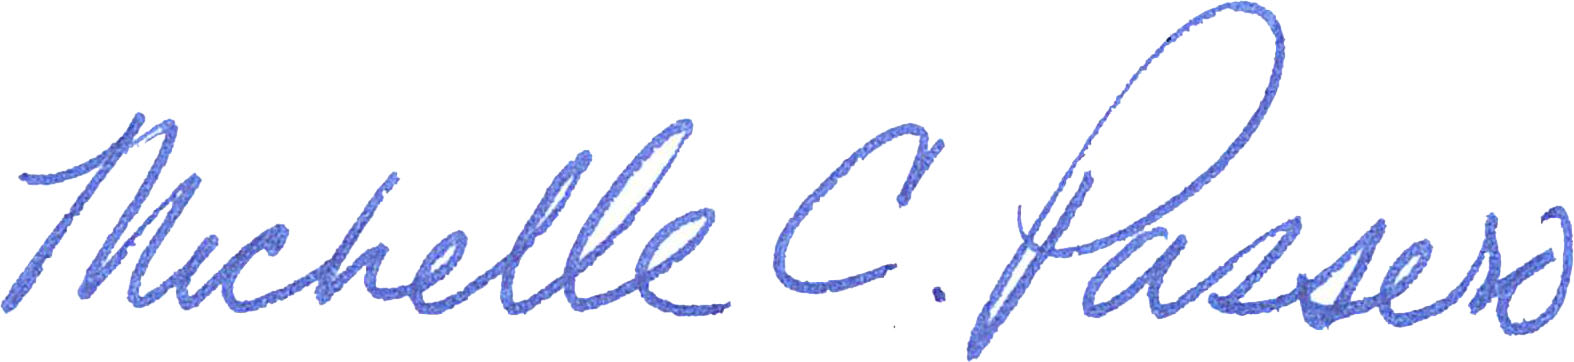 Michelle C. Passero